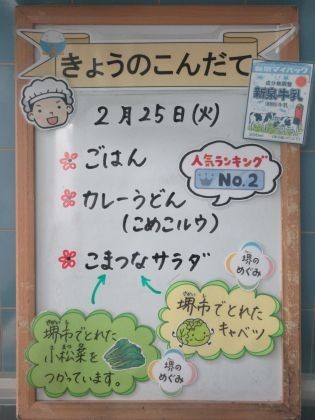 きょうのこんだて
2月25日(火)
成分無調整
新泉牛乳
ごはん
人気ランキング
No.2
カレーうどん
(こめこルウ)
こまつなサラダ
堺の
めぐみ
堺市でとれた
キャベツ
堺市でとれた
小松菜を
つかっています。
堺の
めぐみ